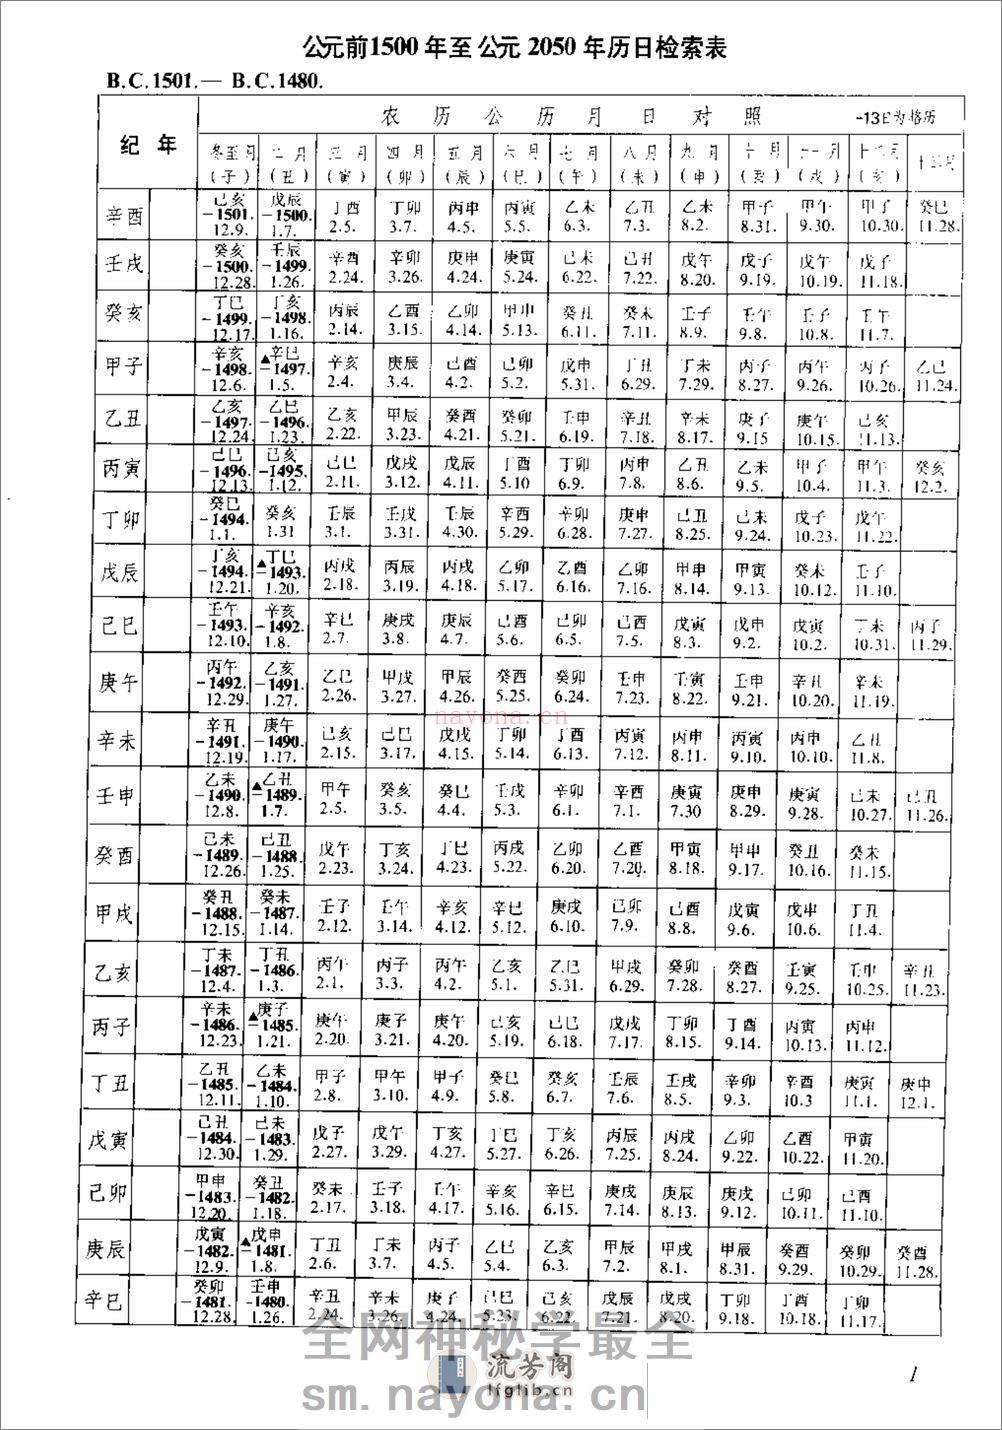 公元前1500年至公元2050年历日检索表
B.C.1501.— B.C.1480.
农历公历月日对照 -13日为格历
纪年 冬至月 二月 三月 四月 五月 六月 七月 八月 九月 十月 十一月 十二月 十三月
(子) (丑) (寅) (卯) (辰) (巳) (午) (未) (申) (酉) (戌) (亥)
辛酉 己亥 戊辰 丁酉 丁卯 丙申 丙寅 乙未 乙丑 乙未 甲子 甲午 甲子 癸巳
-1501. -1500.
12.9. 1.7. 2.5. 3.7. 4.5. 5.5. 6.3. 7.3. 8.2. 8.31. 9.30. 10.30. 11.28.
壬戌 癸亥 壬辰 辛酉 辛卯 庚申 庚寅 己未 己丑 戊午 戊子 戊午 戊子
-1500. -1499.
12.28. 1.26. 2.24. 3.26. 4.24. 5.24. 6.22. 7.22. 8.20. 9.19. 10.19. 11.18.
癸亥 丁巳 丁亥 丙辰 乙酉 乙卯 甲申 癸丑 癸未 壬子 壬午 壬子 壬午
-1499. -1498.
12.17. 1.16. 2.14. 3.15. 4.14. 5.13. 6.11. 7.11. 8.9. 9.8. 10.8. 11.7.
甲子 辛亥 ▲辛巳 辛亥 庚辰 己酉 己卯 戊申 丁丑 丁未 丙子 丙午 丙子 乙巳
-1498. -1497.
12.6. 1.5. 2.4. 3.4. 4.2. 5.2. 5.31. 6.29. 7.29. 8.27. 9.26. 10.26. 11.24.
乙丑 乙亥 乙巳 乙亥 甲辰 癸酉 癸卯 壬申 辛丑 辛未 庚子 庚午 己亥
-1497. -1496.
12.24. 1.23. 2.22. 3.23. 4.21. 5.21. 6.19. 7.18. 8.17. 9.15 10.15. 11.13.
丙寅 己巳 己亥 己巳 戊戌 戊辰 丁酉 丁卯 丙申 乙丑 乙未 甲子 甲午 癸亥
-1496. -1495.
12.13. 1.12. 2.11. 3.12. 4.11. 5.10 6.9. 7.8. 8.6. 9.5. 10.4. 11.3. 12.2.
丁卯 癸巳 癸亥 壬辰 壬戌 壬辰 辛酉 辛卯 庚申 己丑 己未 戊子 戊午
-1494.
1.1. 1.31 3.1. 3.31. 4.30. 5.29. 6.28. 7.27. 8.25. 9.24. 10.23. 11.22.
戊辰 丁亥 ▲丁巳 丙戌 丙辰 丙戌 乙卯 乙酉 乙卯 甲申 甲寅 癸未 壬子
-1494. -1493.
12.21. 1.20. 2.18. 3.19. 4.18. 5.17. 6.16. 7.16. 8.14. 9.13. 10.12. 11.10.
己巳 壬午 辛亥 辛巳 庚戌 庚辰 己酉 己卯 己酉 戊寅 戊申 戊寅 丁未 丙子
-1493. -1492.
12.10. 1.8. 2.7. 3.8. 4.7. 5.6. 6.5. 7.5. 8.3. 9.2. 10.2. 10.31. 11.29.
庚午 丙午 乙亥 乙巳 甲戌 甲辰 癸酉 癸卯 壬申 壬寅 壬申 辛丑 辛未
-1492. -1491.
12.29. 1.27. 2.26. 3.27. 4.26. 5.25. 6.24. 7.23. 8.22. 9.21. 10.20. 11.19.
辛未 辛丑 庚午 己亥 己巳 戊戌 丁卯 丁酉 丙寅 丙申 丙寅 丙申 乙丑
-1491. -1490.
12.19. 1.17. 2.15. 3.17. 4.15. 5.14. 6.13. 7.12. 8.11. 9.10. 10.10. 11.8.
壬申 乙未 ▲乙丑 甲午 癸亥 癸巳 壬戌 辛卯 辛酉 庚寅 庚申 庚寅 己未 己丑
-1490. -1489.
12.8. 1.7. 2.5. 3.5. 4.4. 5.3. 6.1. 7.1. 7.30 8.29. 9.28. 10.27. 11.26.
癸酉 己未 己丑 戊午 丁亥 丁巳 丙戌 乙卯 乙酉 甲寅 甲申 癸丑 癸未
-1489. -1488.
12.26. 1.25. 2.23. 3.24. 4.23. 5.22. 6.20. 7.20. 8.18. 9.17. 10.16. 11.15.
甲戌 癸丑 癸未 壬子 壬午 辛亥 辛巳 庚戌 己卯 己酉 戊寅 戊申 丁丑
-1488. -1487.
12.15. 1.14. 2.12. 3.14. 4.12. 5.12. 6.10. 7.9. 8.8. 9.6. 10.6. 11.4.
乙亥 丁未 丁丑 丙午 丙子 丙午 乙亥 乙巳 甲戌 癸卯 癸酉 壬寅 壬申 辛丑
-1487. -1486.
12.4. 1.3. 2.1. 3.3. 4.2. 5.1. 5.31. 6.29. 7.28. 8.27. 9.25. 10.25. 11.23.
丙子 辛未 ▲庚子 庚午 庚子 庚午 己亥 己巳 戊戌 丁卯 丁酉 丙寅 丙申
-1486. -1485.
12.23. 1.21. 2.20. 3.21. 4.20. 5.19. 6.18. 7.17. 8.15. 9.14. 10.13. 11.12.
丁丑 乙丑 乙未 甲子 甲午 甲子 癸巳 癸亥 壬辰 壬戌 辛卯 辛酉 庚寅 庚申
-1485. -1484.
12.11. 1.10. 2.8. 3.10. 4.9. 5.8. 6.7. 7.6. 8.5. 9.3. 10.3 11.1. 12.1.
戊寅 己丑 己未 戊子 戊午 丁亥 丁巳 丁亥 丙辰 丙戌 乙卯 乙酉 甲寅
-1484. -1483.
12.30. 1.29. 2.27. 3.29. 4.27. 5.27. 6.26. 7.25. 8.24. 9.22. 10.22. 11.20.
己卯 甲申 癸丑 癸未 壬子 壬午 辛亥 辛巳 庚戌 庚辰 庚戌 己卯 己酉
-1483. -1482.
12.20. 1.18. 2.17. 3.18. 4.17. 5.16. 6.15. 7.14. 8.13. 9.12. 10.11. 11.10.
庚辰 戊寅 ▲戊申 丁丑 丁未 丙子 乙巳 乙亥 甲辰 甲戌 甲辰 癸酉 癸卯 癸酉
-1482. -1481.
12.9. 1.8. 2.6. 3.7. 4.5. 5.4. 6.3. 7.2. 8.1. 8.31. 9.29. 10.29. 11.28.
辛巳 癸卯 壬申 辛丑 辛未 庚子 己巳 己亥 戊辰 戊戌 丁卯 丁酉 丁卯
-1481. -1480.
12.28. 1.26. 2.24. 3.26. 4.24. 5.23. 6.22. 7.21. 8.20. 9.18. 10.18. 11.17.
nayona.cn
全网神秘学最全
流芳阁
lfglib.cn
sm.nayona.cn
1